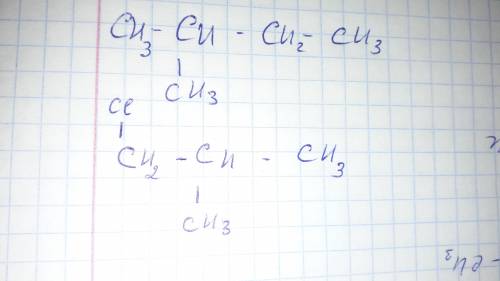 CH₃ - CH - CH₂ - CH₃
|
CH₃
Cl
|
CH₂ - CH - CH₃
|
CH₃